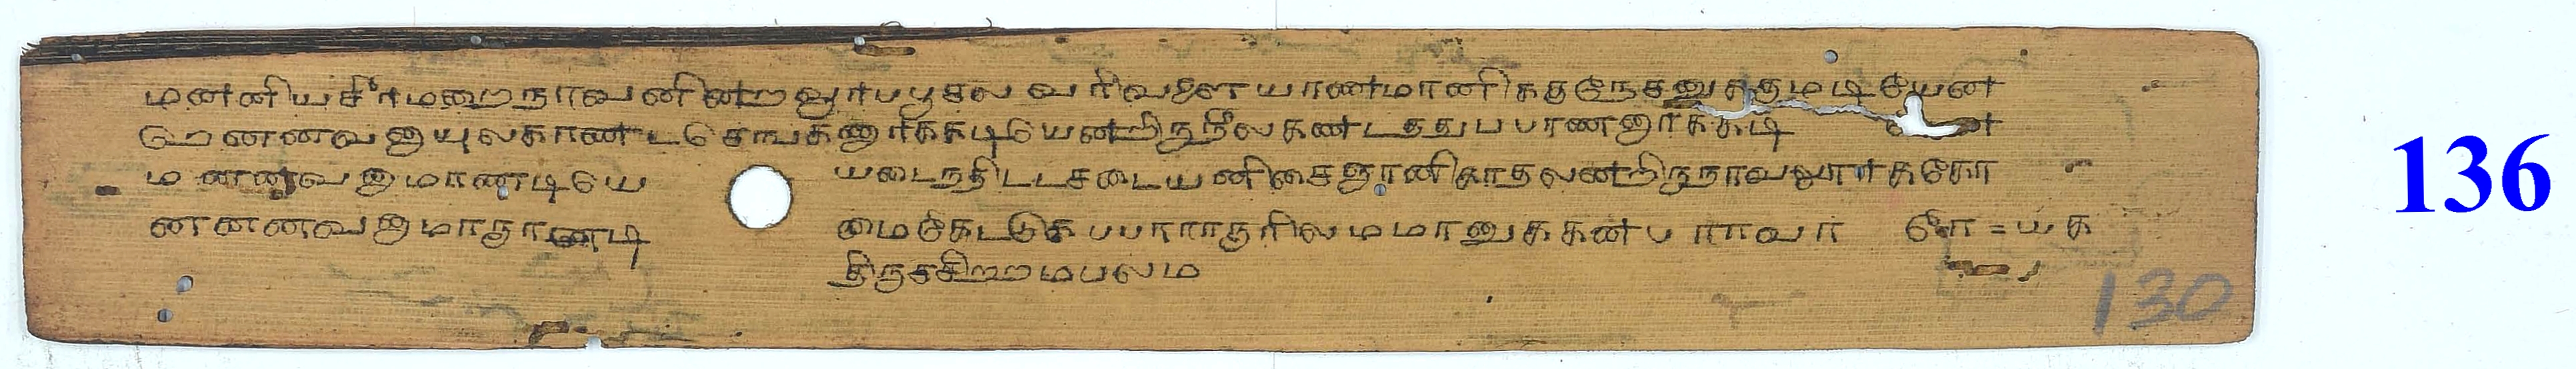 மனனியசிாமறைநாவனின்றவூாபபூசல வரிவளையாணமானிககுநேசனுககுமடியேன
றெனனவனாயுலகாண்டசெஙகணாாககடியேன்றிருநீலகண்டததுபபாணனாாககடி
மனனவனாமாணடியே யடைநதிடடசடையனிசைஞானிகாதலன்றிருநாவலூாககோ
னனனவனாமாதாணடி மைகேடடுகபபாராரூரிலமமானுககன்பராவா ரே = யக
திருசசிறறமபலம
130
136